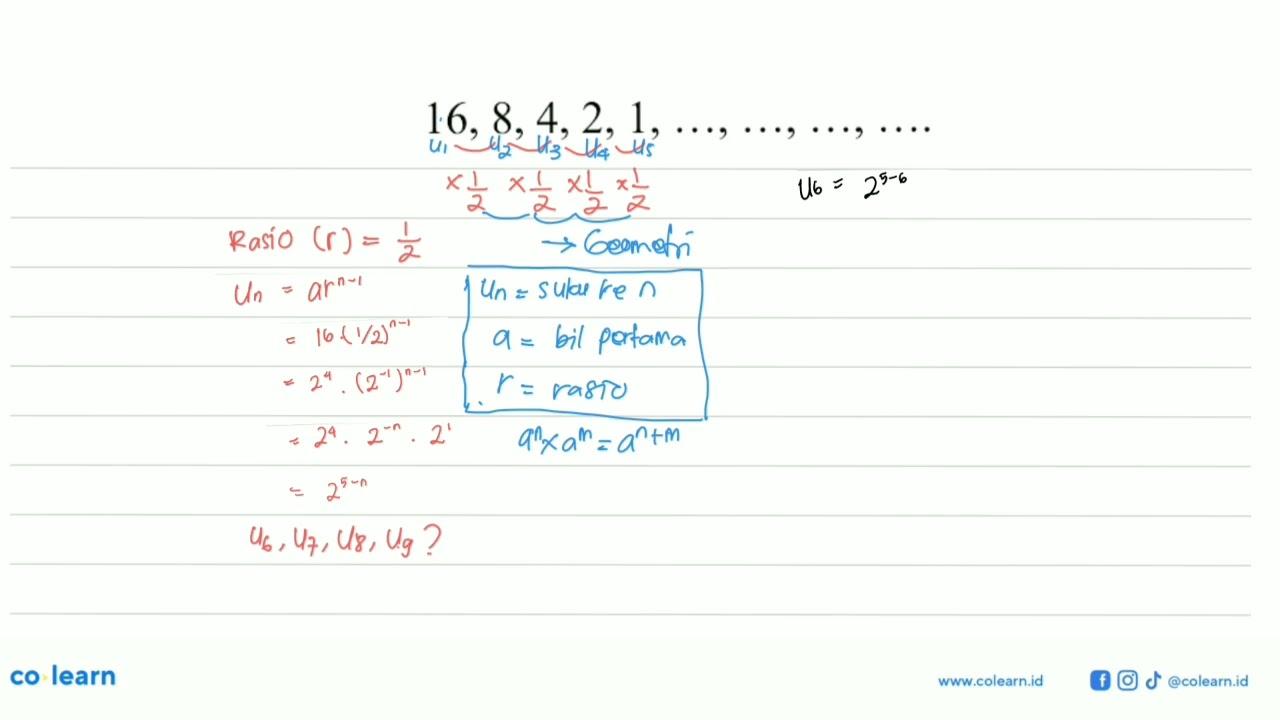 16, 8, 4, 2, 1, ..., ..., ..., ....
U1 U2 U3 U4 U5
×1/2 ×1/2 ×1/2 ×1/2
U6 = 2^5-6
Rasio (r) = 1/2
→ Geometri
Un = ar^n-1
= 16·(1/2)^n-1
= 2^4 . (2^-1)^n-1
= 2^4 . 2^-n . 2^1
= 2^5-n
U6, U7, U8, U9?
Un = suku ke n
a = bil pertama
r = rasio
a^n × a^m = a^n+m
co learn
www.colearn.id
@colearn.id